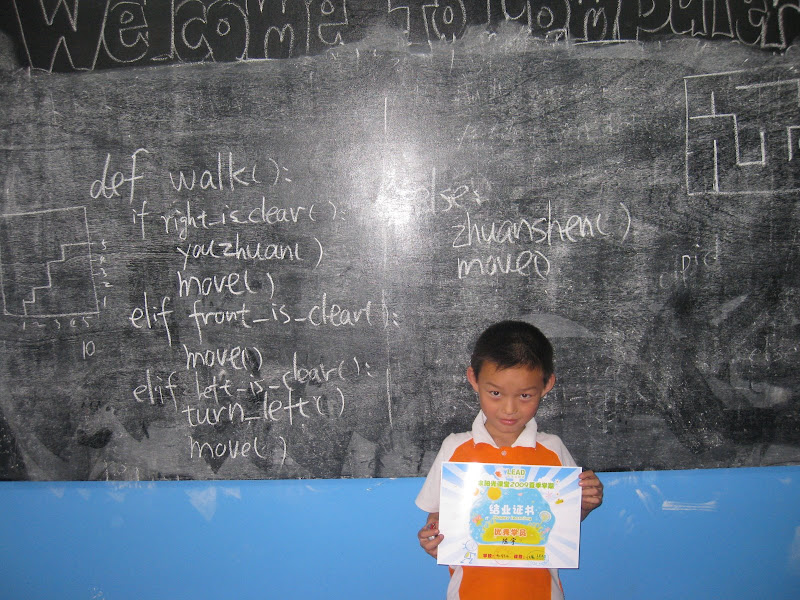 Welcome To Computer
def walk():
if right_is_clear():
youzhuan()
move()
elif front_is_clear():
move()
elif left_is_clear():
turn_left()
move()
else:
zhuanshen()
move()
5
4
3
2
1
1 2 3 4 5
10
LEAD
2009夏季学期
结业证书
优秀学员